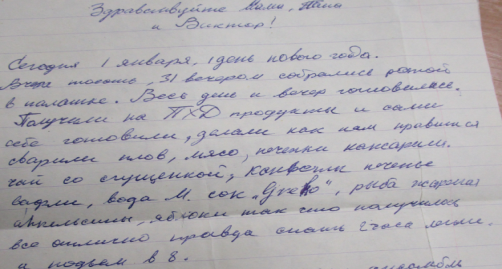 Здравствуйте Мама, Таня
и Виктор!
Сегодня 1 января, 1 день нового года.
Вчера 31 вечером собрались ротой
в палатке. Весь день и вечер готовились.
Получили на ПХД продукты и сами
себе готовили, делали как нам нравится
сварили плов, мясо, печенки нажарили.
чай со сгущенкой, конфеты печенье
вафли, вода М. сок „ “, рыба жареная
апельсины, яблоки так что получилось
все отлично правда спать 2 часа легли.
и подъем в 8.